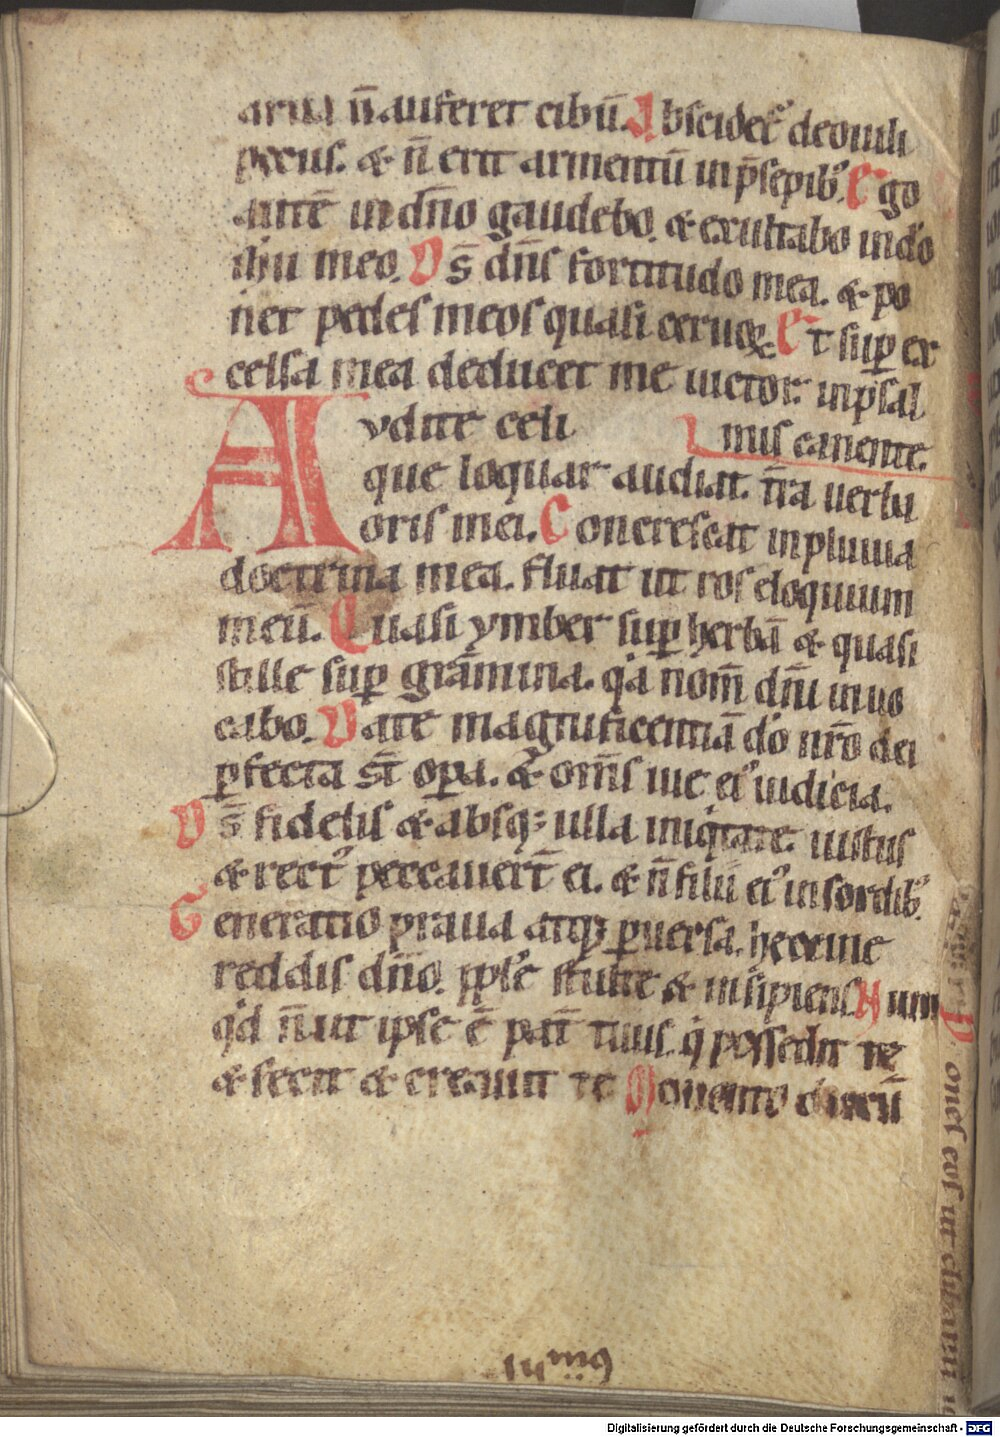 arua n̄ afferet cibū. Abscidet᷒ deouili
pecus. & n̄ erit armentū inp̄sepib᷒. Ego
autē indn̄o gaudebo. & exultabo indō
ihu meo. Ds̄ dn̄s fortitudo mea. & po
net pedes meos quasi ceruoꝝ. Et suꝑ ex
celsa mea deducet me uictor inpsal
Avdite celi mis canente.
que loquar audiat t̄ra uerba
oris mei. Concrescat inpluuia
doctrina mea. fluat ut ros eloquium
meū. Quasi ymber suꝑ herbā & quasi
stille suꝑ gramina. qa nom̄ dn̄i inuo
cabo. Date magnificentiā dō nr̄o dei
ꝑfecta st̄ oꝑa. & om̄s uie ei᷒ iudicia.
Ds̄ fidelis & absq; ulla iniqitate. iustus
& rect᷒ peccauert̄ ei. & n̄ filii ei᷒ insordib᷒.
Generatio praua atq; ꝑuersa. heccine
reddis dn̄o. pple stulte & insipiens Num
qd n̄ ut ipse ē pat̄ tuus. q possedit te
& fecit & creauit te Memento dierū
ones eos ut clibanu